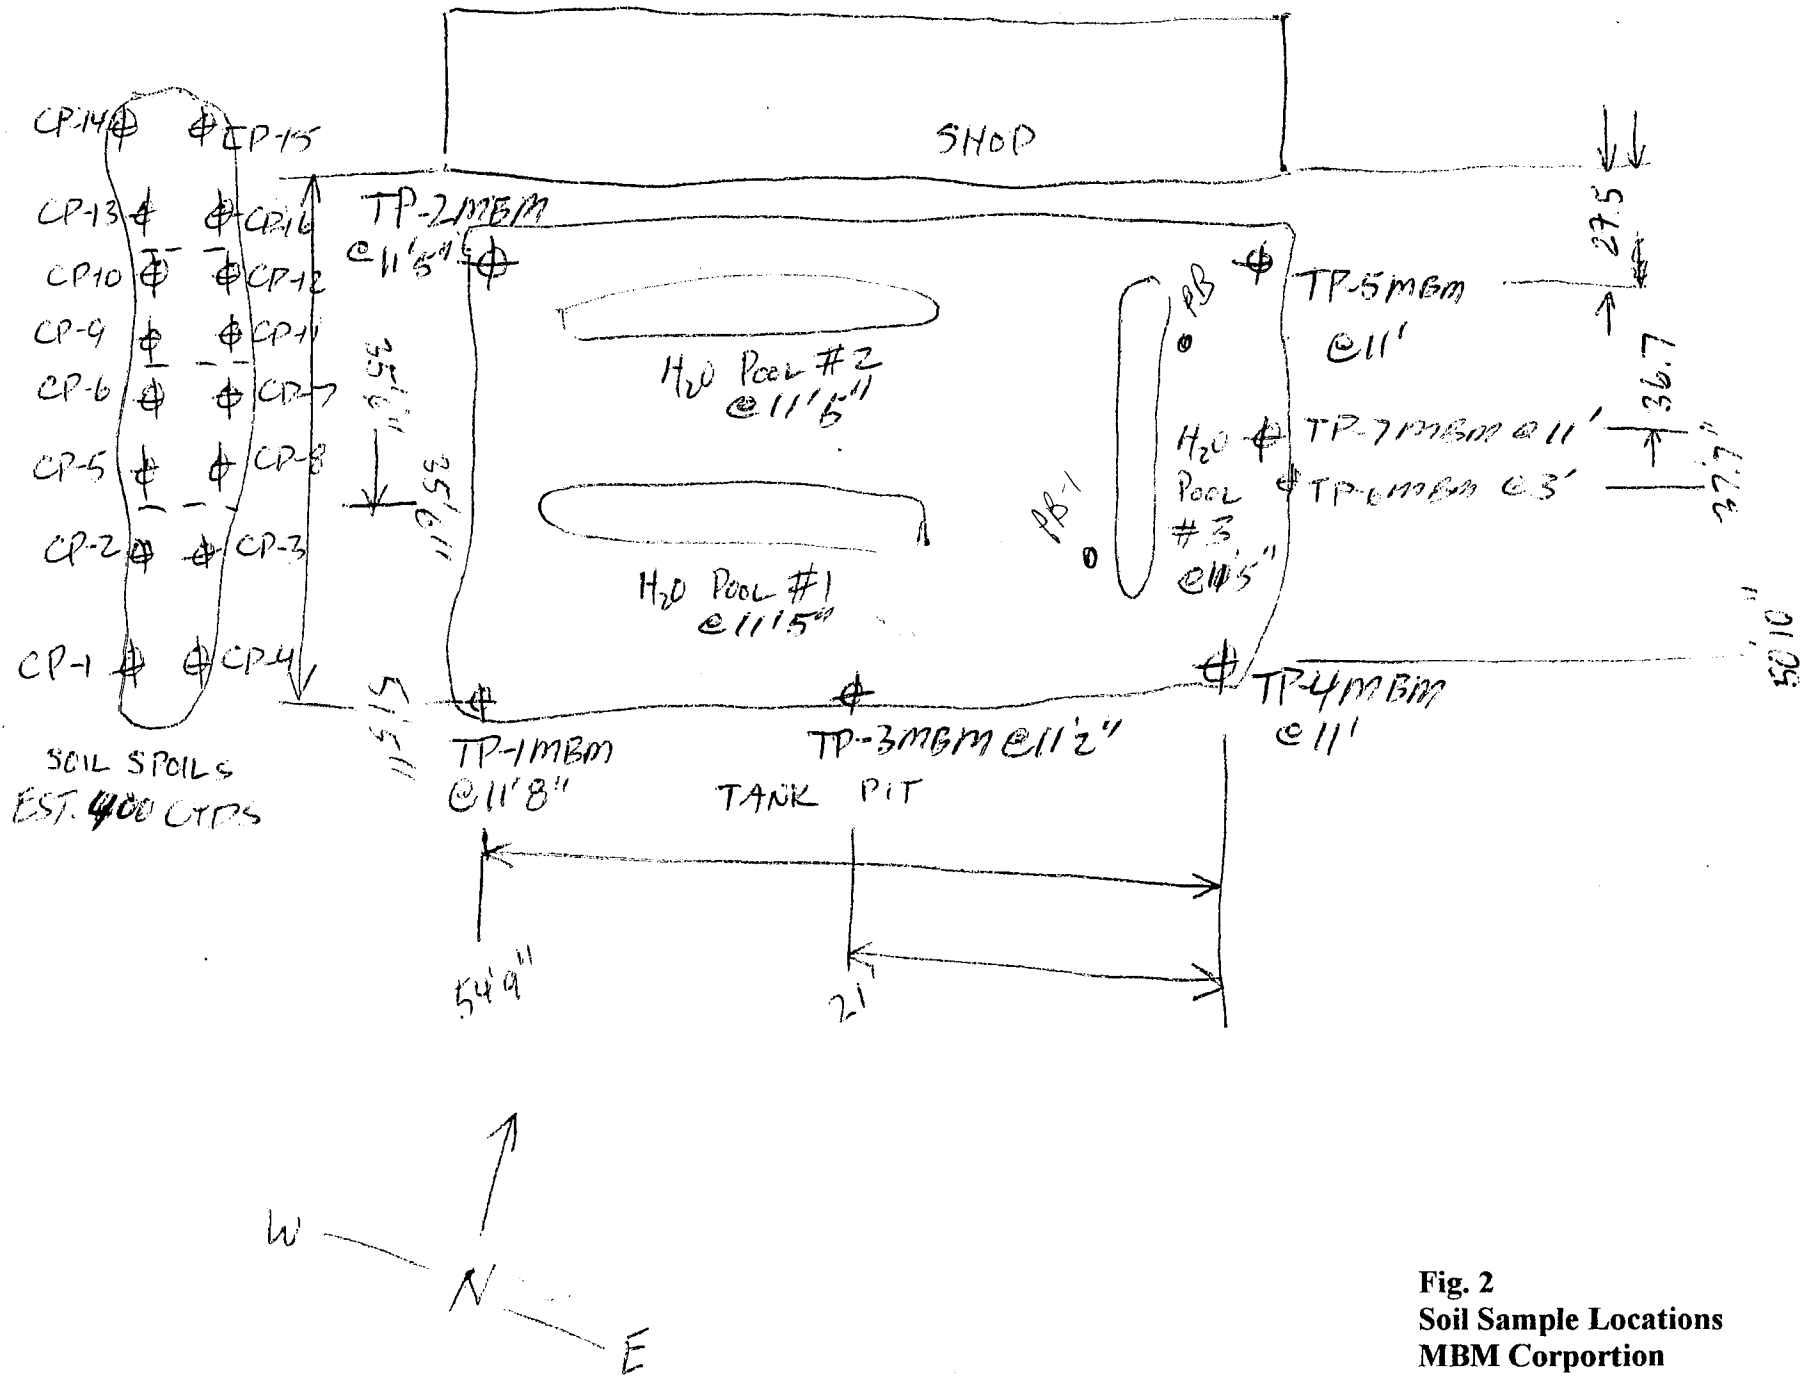 SHOP
CP-14
CP-15
CP-13
CP-16
CP-10
CP-12
CP-9
CP-11
CP-6
CP-7
CP-5
CP-8
CP-2
CP-3
CP-1
CP-4
SOIL SPOILS
EST. 400 CYDS
TP-2MBM
@11'5"
35'6"
35'6"
51'5"
H2O POOL #2
@11'5"
H2O POOL #1
@11'5"
PB
PB-1
H2O
POOL
#3
@11'5"
TP-5MBM
@11'
TP-7MBM @11'
TP-6MBM @3'
TP-4MBM
@11'
27.5
36.7
37.7"
50'10"
TP-1MBM
@11'8"
TP-3MBM@11'2"
TANK PIT
54'9"
21'
W
N
E
Fig. 2
Soil Sample Locations
MBM Corportion